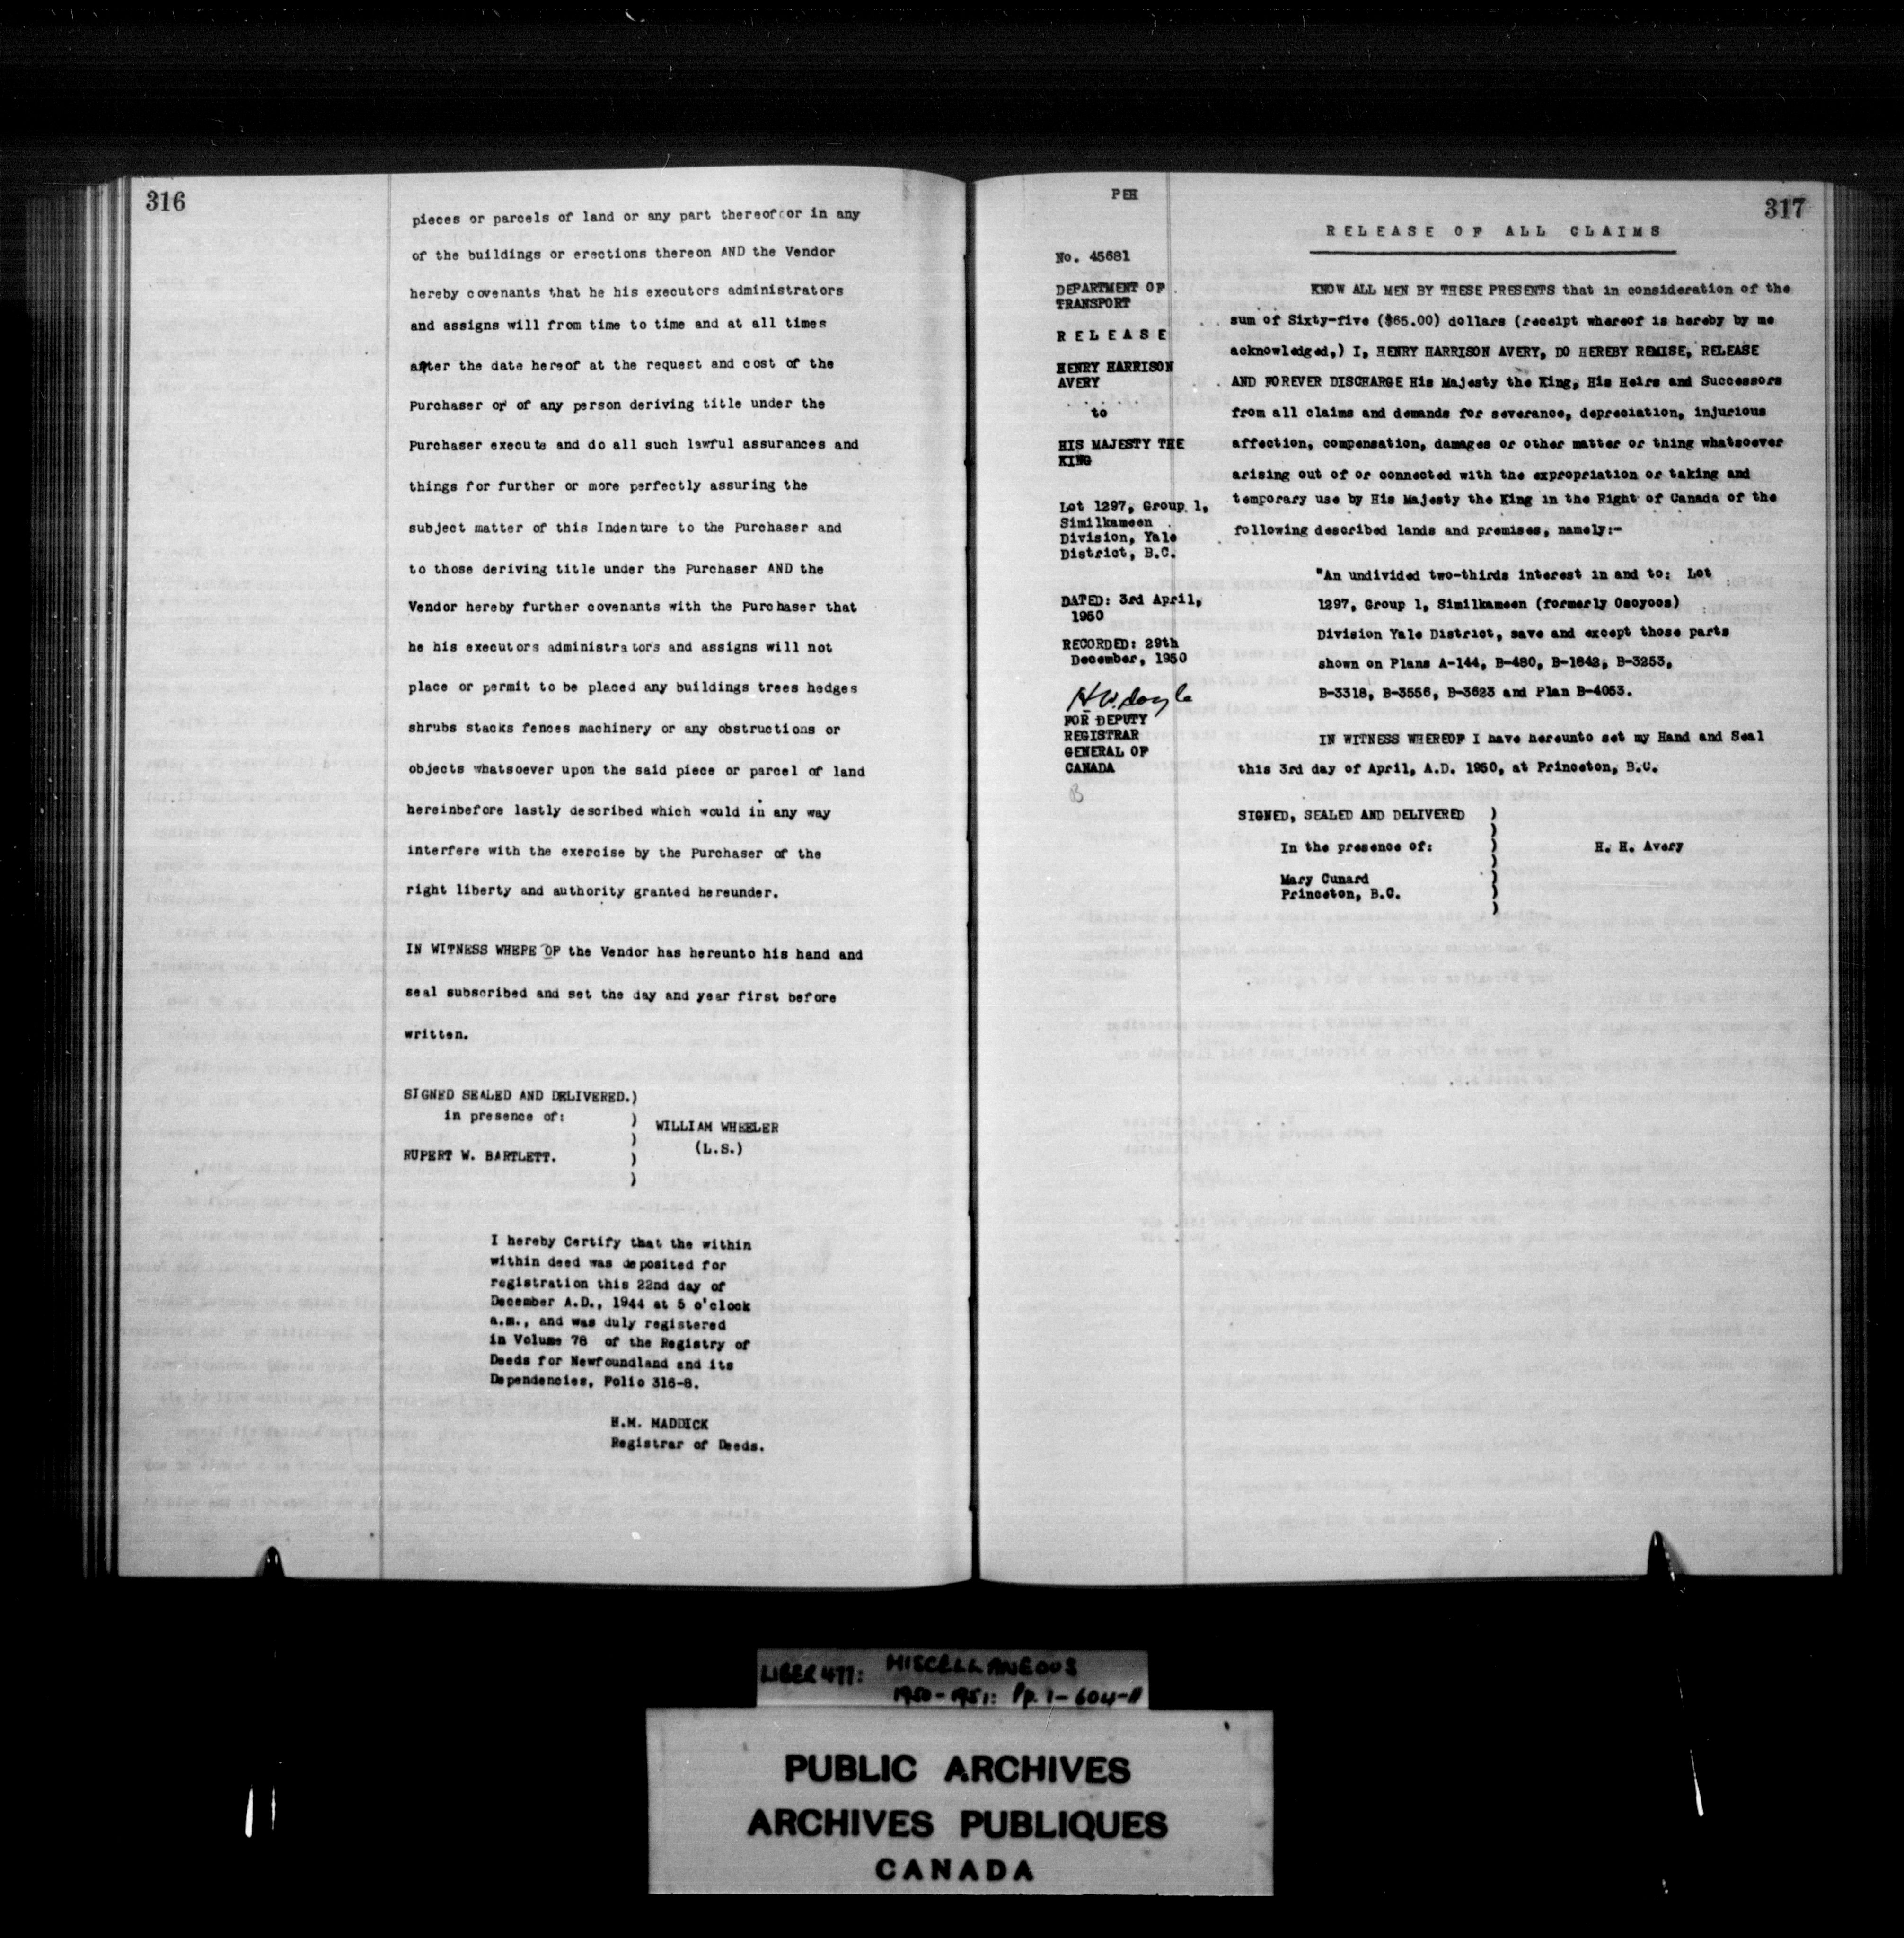 316
pieces or parcels of land or any part thereof or in any
of the buildings or erections thereon AND the Vendor
hereby covenants that he his executors administrators
and assigns will from time to time and at all times
after the date hereof at the request and cost of the
Purchaser or of any person deriving title under the
Purchaser execute and do all such lawful assurances and
things for further or more perfectly assuring the
subject matter of this Indenture to the Purchaser and
to those deriving title under the Purchaser AND the
Vendor hereby further covenants with the Purchaser that
he his executors administrators and assigns will not
place or permit to be placed any buildings trees hedges
shrubs stacks fences machinery or any obstructions or
objects whatsoever upon the said piece or parcel of land
hereinbefore lastly described which would in any way
interfere with the exercise by the Purchaser of the
right liberty and authority granted hereunder.
IN WITNESS WHEPE OF the Vendor has hereunto his hand and
seal subscribed and set the day and year first before
written.
SIGNED SEALED AND DELIVERED.)
in presence of: )
WILLIAM WHEELER
)
(L.S.)
RUPERT W. BARTLETT. )
)
I hereby Certify that the within
within deed was deposited for
registration this 22nd day of
December A.D., 1944 at 5 o'clock
a.m., and was duly registered
in Volume 78 of the Registry of
Deeds for Newfoundland and its
Dependencies, Folio 316-8.
H.M. MADDICK
Registrar of Deeds.
PEH
317
No. 45681
DEPARTMENT OF
TRANSPORT
R E L E A S E
HENRY HARRISON
AVERY
to
HIS MAJESTY THE
KING
Lot 1297, Group 1,
Similkameen
Division, Yale
District, B.C.
DATED: 3rd April,
1950
RECORDED: 29th
December, 1950
H W Doyle
FOR DEPUTY
REGISTRAR
GENERAL OF
CANADA
B
R E L E A S E O F A L L C L A I M S
KNOW ALL MEN BY THESE PRESENTS that in consideration of the
sum of Sixty-five ($65.00) dollars (receipt whereof is hereby by me
acknowledged,) I, HENRY HARRISON AVERY, DO HEREBY REMISE, RELEASE
AND FOREVER DISCHARGE His Majesty the King, His Heirs and Successors
from all claims and demands for severance, depreciation, injurious
affection, compensation, damages or other matter or thing whatsoever
arising out of or connected with the expropriation or taking and
temporary use by His Majesty the King in the Right of Canada of the
following described lands and premises, namely:-
"An undivided two-thirds interest in and to: Lot
1297, Group 1, Similkameen (formerly Osoyoos)
Division Yale District, save and except those parts
shown on Plans A-144, B-480, B-1842, B-3253,
B-3318, B-3556, B-3623 and Plan B-4053.
IN WITNESS WHEREOF I have hereunto set my Hand and Seal
this 3rd day of April, A.D. 1950, at Princeton, B.C.
SIGNED, SEALED AND DELIVERED )
)
In the presence of: ) H. H. Avery
)
Mary Cunard )
Princeton, B.C. )
)
LIBER 477: MISCELLANEOUS
1950-1951: Pp. 1-604-A
PUBLIC ARCHIVES
ARCHIVES PUBLIQUES
CANADA